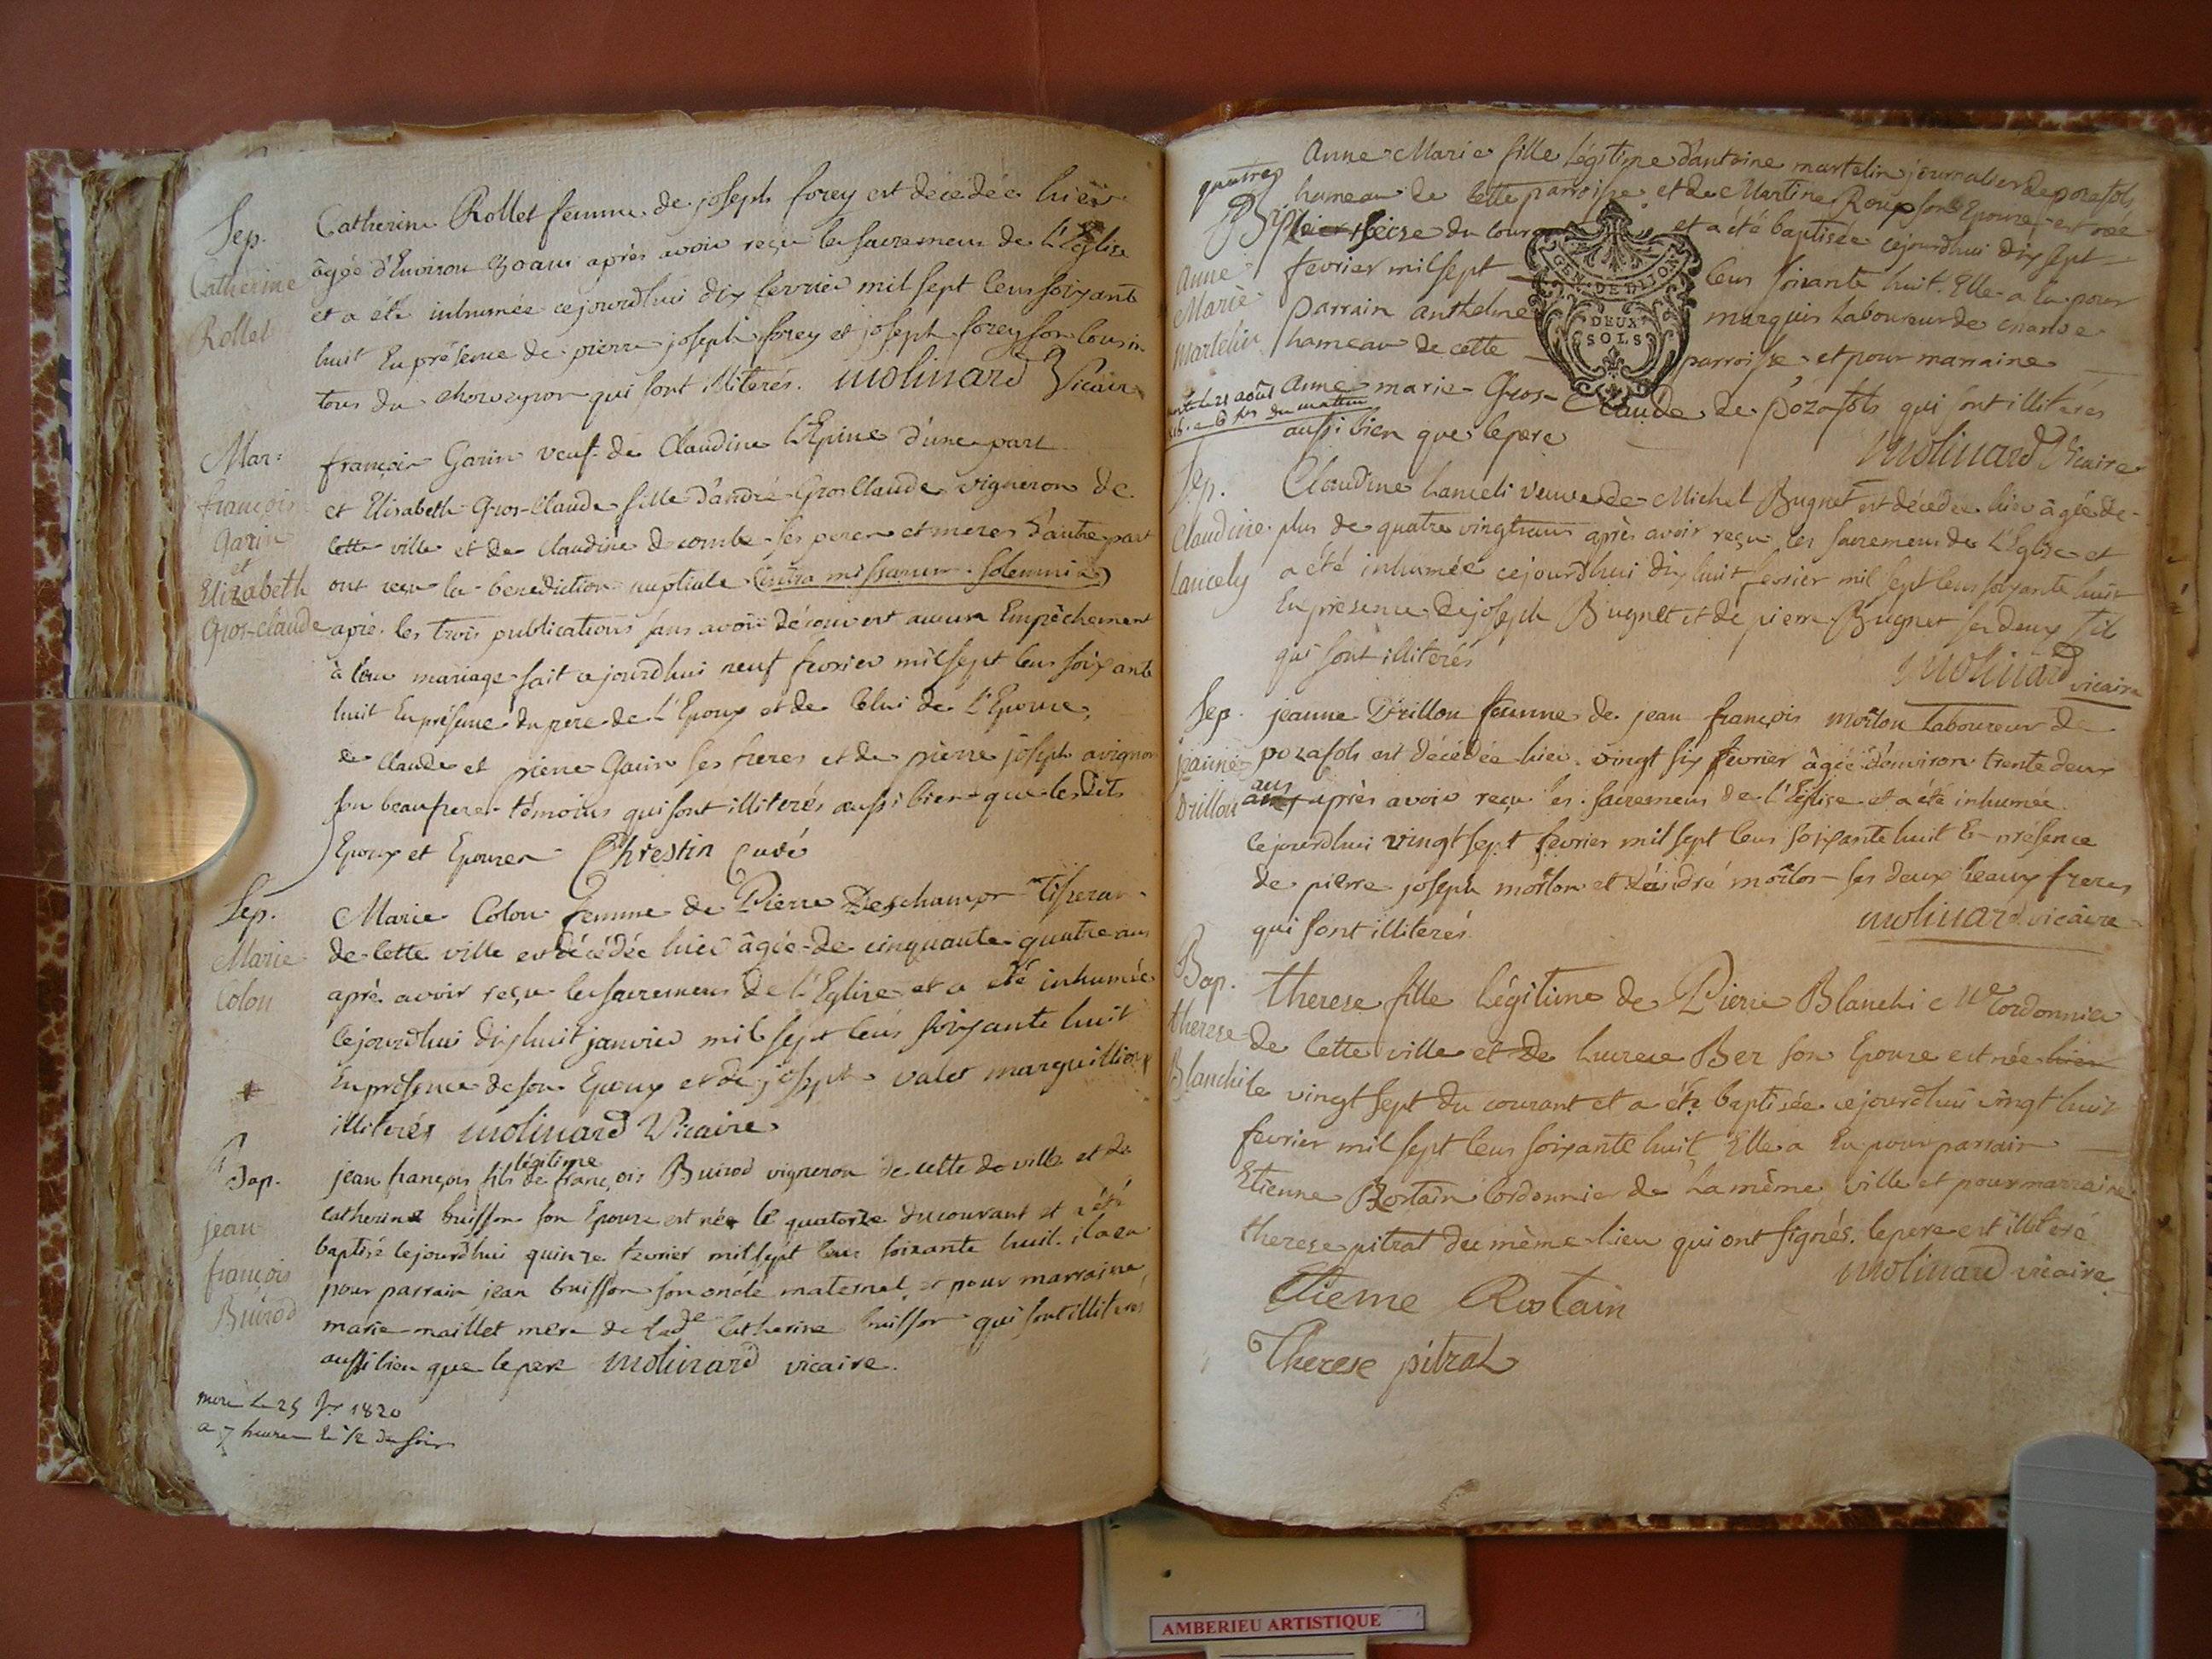 Sep.
Catherine
Rollet
Catherine Rollet femme de joseph forey est décédée hier
âgée d'Environ 30 ans après avoir reçu les sacremens de l'Eglise
et a été inhumée cejourdhui dix fevrier mil sept cens soixante
huit En présence de pierre joseph forey et joseph forey son cousin
tous du qui sont illiterés. Molinard Vicaire
Mar:
françois
Garin
et
Elizabeth
Gros-claude
françois Garin veuf de Claudine l'Epine d'une part
et Elisabeth Gros-Claude fille d'andré Gros Claude vigneron de
cette ville et de Claudine decombe ses peres et meres d'autre part
ont reçu la benediction nuptiale (intra missarum solemnia)
après les trois publications sans avoir découvert aucun Empêchement
à leur mariage fait cejourdhui neuf fevrier mil sept cens soixante
huit En présence du pere de l'Epoux et de Celui de l'Epouse,
de Claude et pierre Garin ses freres et de pierre joseph avignon
son beaufrere témoins qui sont illiterés aussi bien que lesdits
Epoux et Epouses Chrestin Curé
Sep.
Marie
Colon
Marie Colon femme de Pierre Deschamps Tisseran
de cette ville est décédée hier âgée de cinquante quatre ans
après avoir reçu les sacremens de l'Eglise et a été inhumée
cejourdhui dix huit janvier mil sept cens soixante huit
En présence de son Epoux et de joseph valet marguillier
illiterés Molinard Vicaire
Bap.
jean
françois
Buirod
légitime
jean françois fils de françois Buirod vigneron de cette de ville et de
catherine buisson son Epouse est né le quatorze du courant et a été
baptisé cejourdhui quinze fevrier mil sept cens soixante huit. il a eu
pour parrain jean buisson son oncle maternel et pour marraine
marie maillet mere de lade Catherine buisson qui sont illiteres
aussi bien que le pere Molinard vicaire.
mort le 25 1820
a 7 heures & 1/2 du soir
Bap.
Anne
Marie
Martelin
Anne Marie fille légitime d'antoine martelin journalier de pozafols
hameau de cette parroisse et de Martine Roux son Epouse est née
le seize du courant et a été baptisée cejourdhui dix sept
fevrier mil sept cens soixante huit. Elle a eu pour
parrain anthelme marquis laboureur de
hameau de cette parroisse et pour marraine
Anne marie Gros-Claude de pozafols qui sont illiterés
aussi bien que le pere
Molinard Vicaire
21 août
a 6 hrs du matin
Sep.
Claudine
Lancely
Claudine Lanceli veuve de Michel Bugnet est décédée hier âgée de
plus de quatre vingt ans après avoir reçu les sacremens de l'Eglise et
a été inhumée cejourdhui dix huit fevrier mil sept cens soixante huit
En présence de joseph Bugnet et de pierre Bugnet ses deux fils
qui sont illiterés
Molinard vicaire
Sep.
jeanne
Drillon
jeanne Drillon femme de jean françois morlon Laboureur de
pozafols est décédée hier vingt six fevrier âgée d'environ trente deux
ans après avoir reçu les sacremens de l'Eglise et a été inhumée
cejourdhui vingt sept fevrier mil sept cens soixante huit En présence
de pierre joseph morlon et d'andré morlon ses deux beaux freres
qui sont illiterés
Molinard vicaire
Bap.
therese
Blanchi
therese fille légitime de Pierre Blanchi Me Cordonnier
de cette ville et de Lucrece Ber son Epouse est née hier
le vingt sept du courant et a été baptisée cejourdhui vingt huit
fevrier mil sept cens soixante huit. Elle a Eu pour parrain
Etienne Rostain Cordonnier de la même ville et pour marraine
therese pitrat du même lieu qui ont signés. le pere est illiteré
Molinard vicaire
Etienne Rostain
Therese pitrat
GEN. DE DIJON
DEUX
SOLS
AMBERIEU ARTISTIQUE